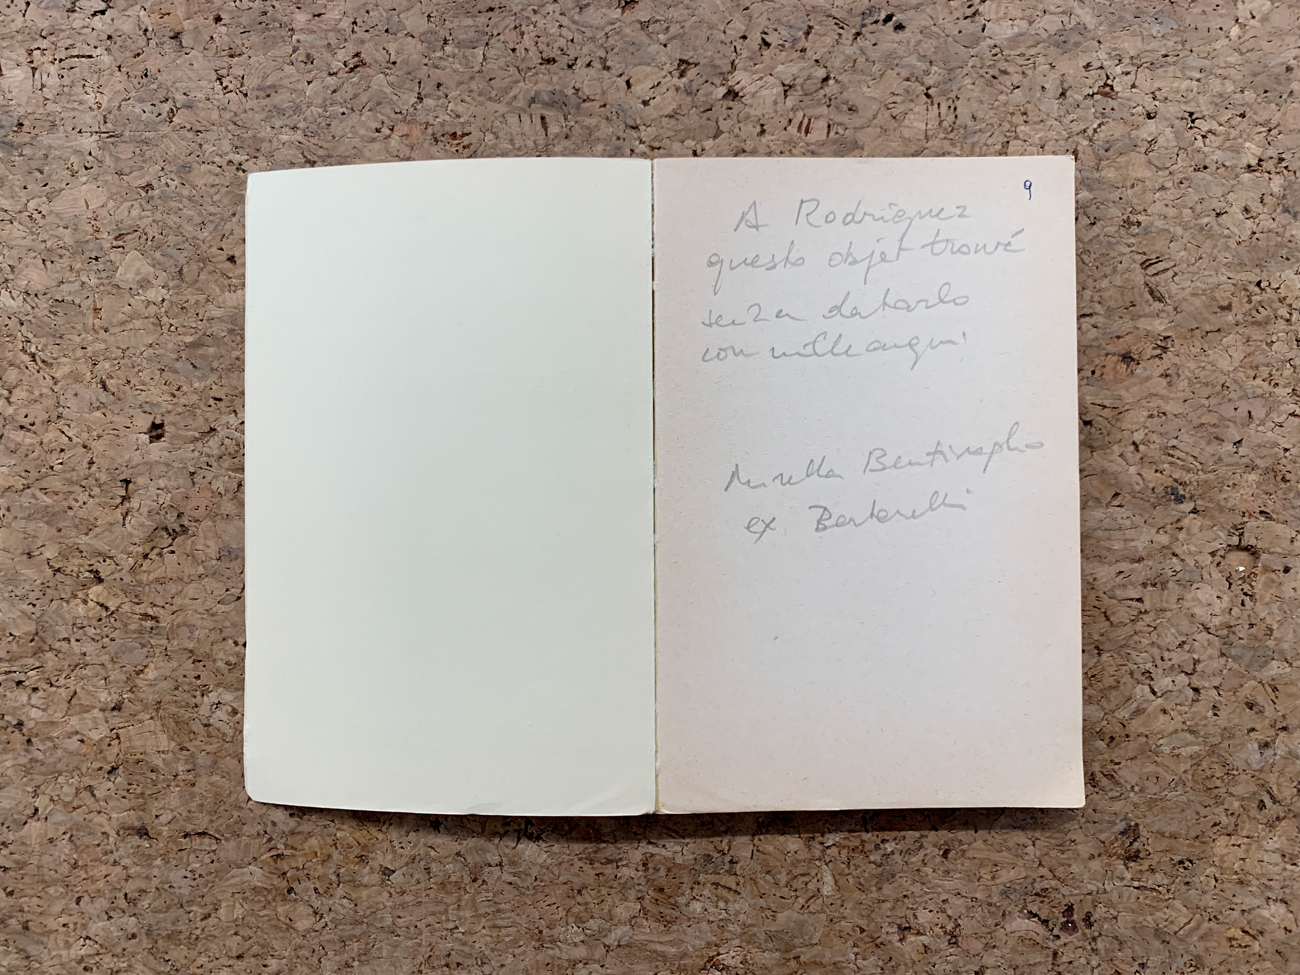 9
A Rodriguez
questo objet trouvé
senza datarlo
con mille auguri
Mirella Bentivoglio
ex Bertarelli